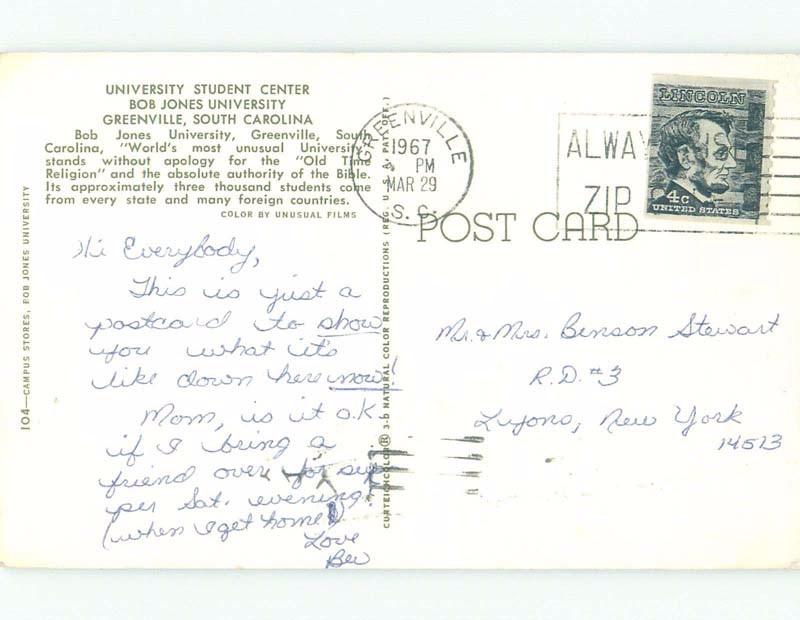 UNIVERSITY STUDENT CENTER
BOB JONES UNIVERSITY
GREENVILLE, SOUTH CAROLINA
Bob Jones University, Greenville, South
Carolina, "World's most unusual University,"
stands without apology for the "Old Time
Religion" and the absolute authority of the Bible.
Its approximately three thousand students come
from every state and many foreign countries.
COLOR BY UNUSUAL FILMS
Hi Everybody,
This is just a
postcard to show
you what it's
like down here now!
Mom, is it o.K.
if I bring a
friend over for sup
per Sat. evening?
(when I get home)
Love
Bev
104—CAMPUS STORES, BOB JONES UNIVERSITY
CURTEICHCOLOR® 3-D NATURAL COLOR REPRODUCTIONS (REG. U.S.A. PAT. OFF.)
GREENVILLE
1967
PM
MAR 29
S. C.
ALWAY
ZIP
LINCOLN
4c
UNITED STATES
POST CARD
Mr. & Mrs. Benson Stewart
R.D. #3
Lyons, New York
14513